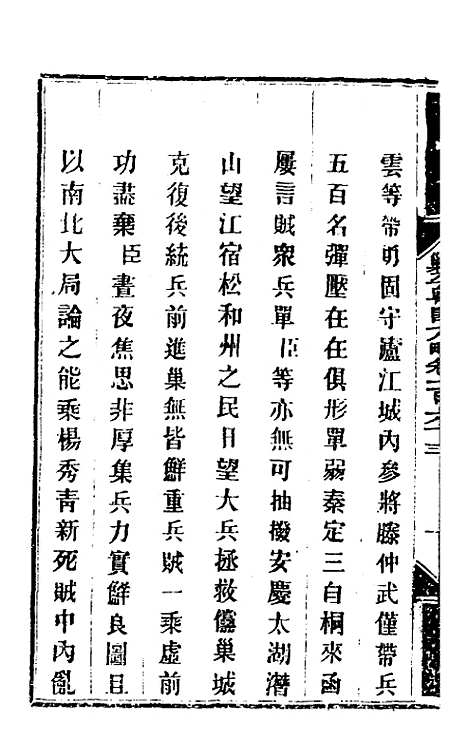 雲等帶勇固守廬江城內參將滕仲武僅帶兵
五百名彈壓在在俱形單弱秦定三自桐來函
屢言賊衆兵單臣等亦無可抽撥安慶太湖潛
山望江宿松和州之民日望大兵拯救儻巢城
克復後統兵前進巢無皆鮮重兵賊一乘虛前
功盡棄臣晝夜焦思非厚集兵力實鮮良圖且
以南北大局論之能乘楊秀青新死賊中內亂